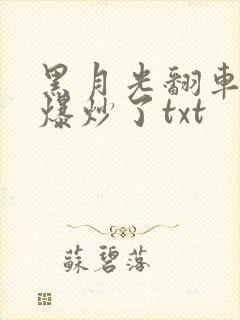 黑月光翻車
爆炒了txt
蘇碧落